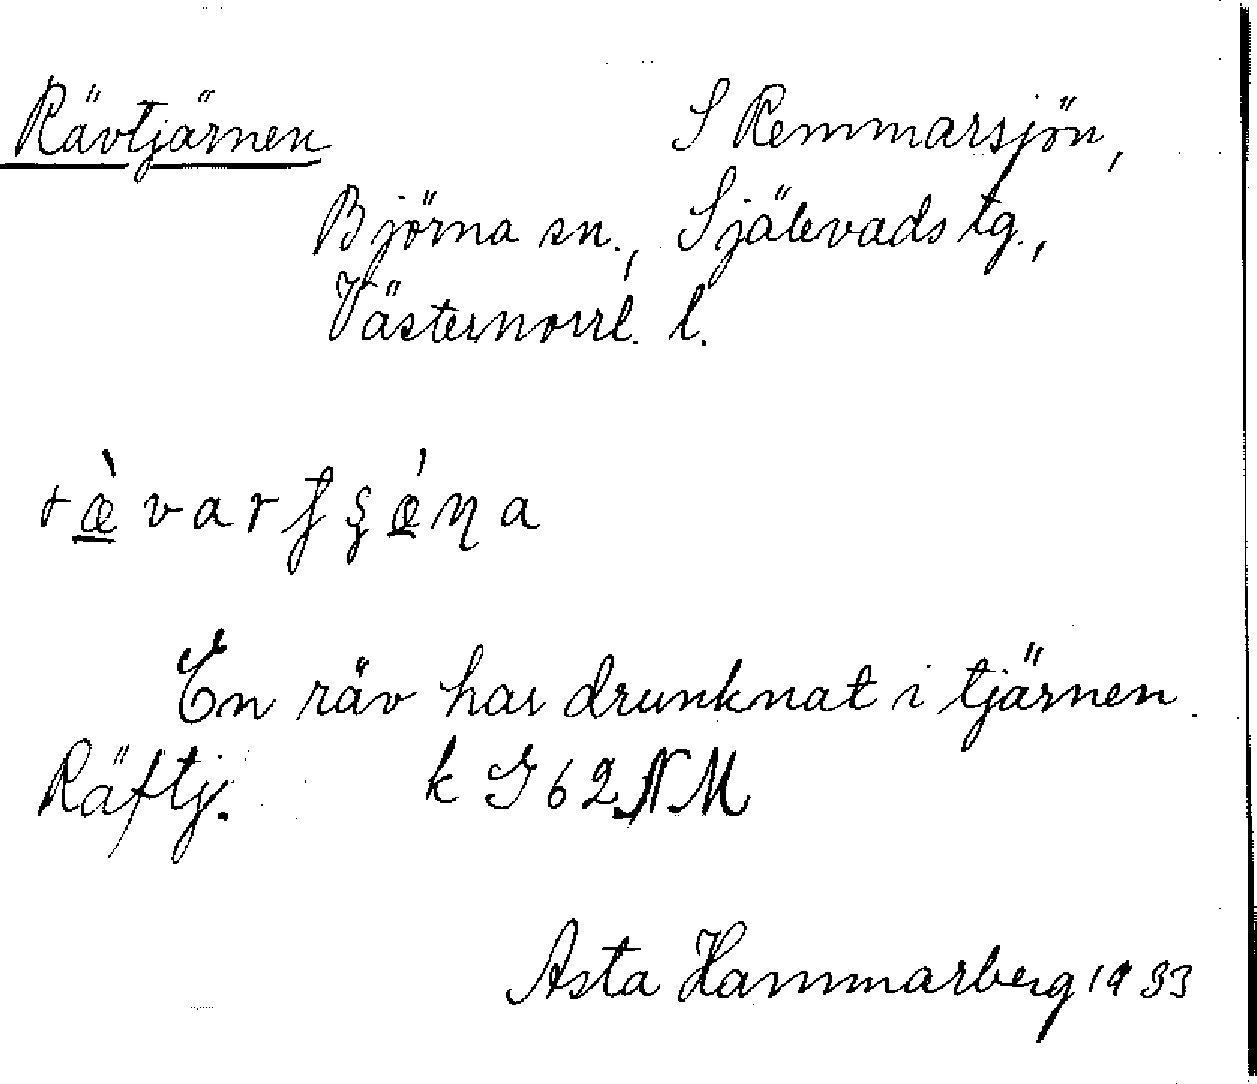 Rävtjärnen S Remmarsjön,
Björna sn., Själevads tg.,
Västernorrl. l.
En räv har drunknat i tjärnen.
Räftj. k G 62 NM
Asta Hammarberg 1933